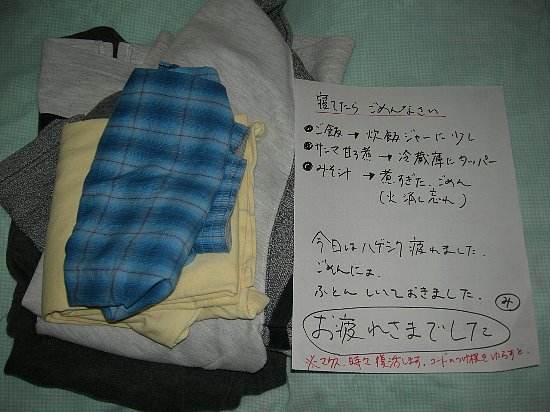 寝てたら ごめんなさい
●ご飯 → 炊飯ジャーに少し
●サンマ甘煮 → 冷蔵庫にタッパー
●みそ汁 → 煮すぎた、ごめん
(火 消し忘れ)
今日はハゲシク疲れました.
ごめんにょ.
ふとん しいておきました. み
お疲れさまでした
※マウス 時々復活します. コードのつけ根をゆらすと.